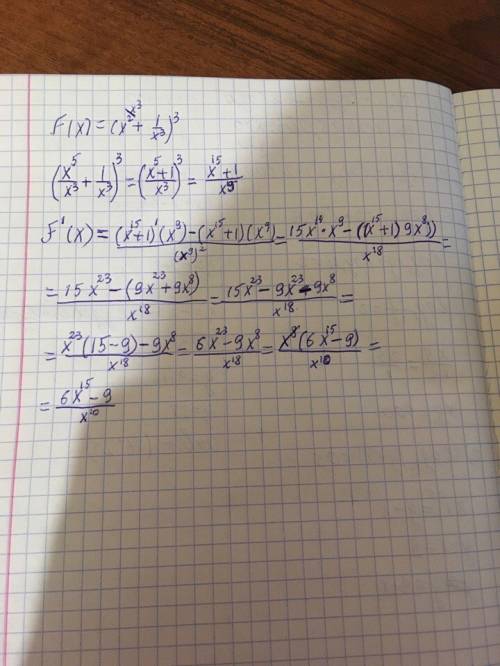 F(x) = (x² ˣ³ + 1/x³)³
(x⁵/x³ + 1/x³)³ = (x⁵+1/x³)³ = x¹⁵+1/x⁹
F'(x) = (x¹⁵+1)'(x⁹)-(x¹⁵+1)(x⁹)/(x⁹)² = 15x¹⁴·x⁹-((x¹⁵+1)9x⁸))/x¹⁸ =
= 15x²³-(9x²³+9x⁸)/x¹⁸ = 15x²³-9x²³-9x⁸/x¹⁸ =
= x²³(15-9)-9x⁸/x¹⁸ = 6x²³-9x⁸/x¹⁸ = x⁸(6x¹⁵-9)/x¹⁰ =
= 6x¹⁵-9/x¹⁰